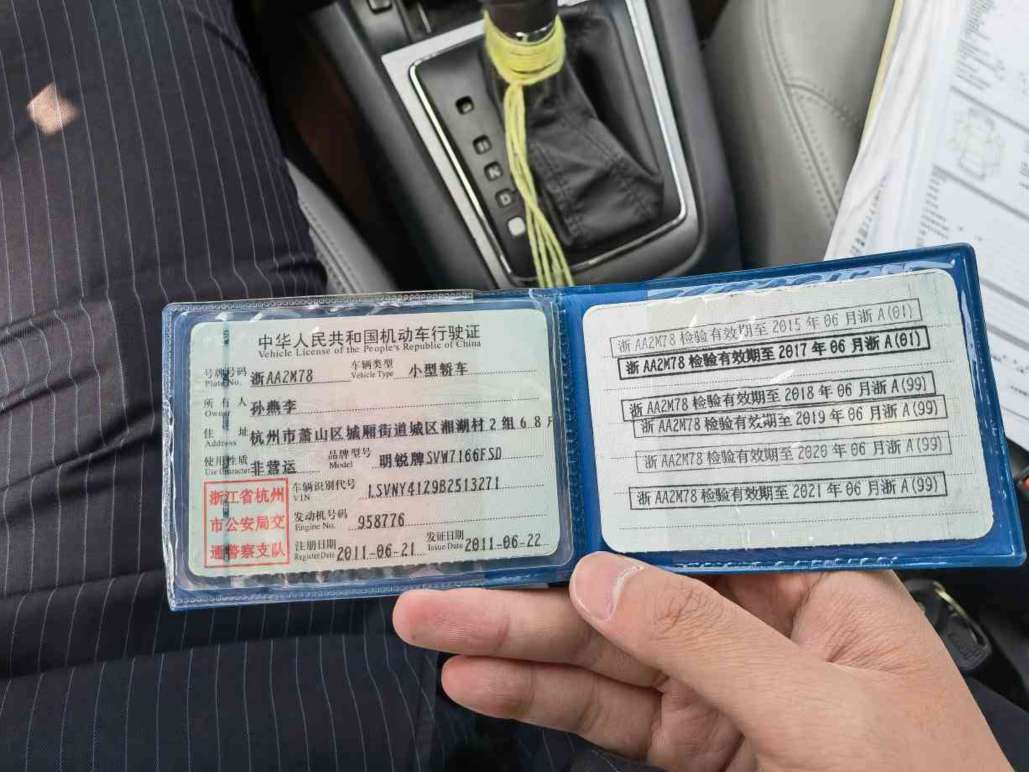 中华人民共和国机动车行驶证
Vehicle License of the People's Republic of China
号牌号码 浙AA2M78 车辆类型 小型轿车
Plate No. Vehicle Type
所有人 孙燕李
Owner
住址 杭州市萧山区城厢街道城区湘湖村2组68
Address
使用性质 非营运 品牌型号 明锐牌SVW7166FSD
Use Character Model
车辆识别代号 LSVNY4129B2513271
VIN
发动机号码 958776
Engine No.
注册日期 2011-06-21 发证日期 2011-06-22
Register Date Issue Date
浙江省杭州
市公安局交
通警察支队
浙AA2M78检验有效期至2015年06月浙A(01)
浙AA2M78检验有效期至2017年06月浙A(01)
浙AA2M78检验有效期至2018年06月浙A(99)
浙AA2M78检验有效期至2019年06月浙A(99)
浙AA2M78检验有效期至2020年06月浙A(99)
浙AA2M78检验有效期至2021年06月浙A(99)